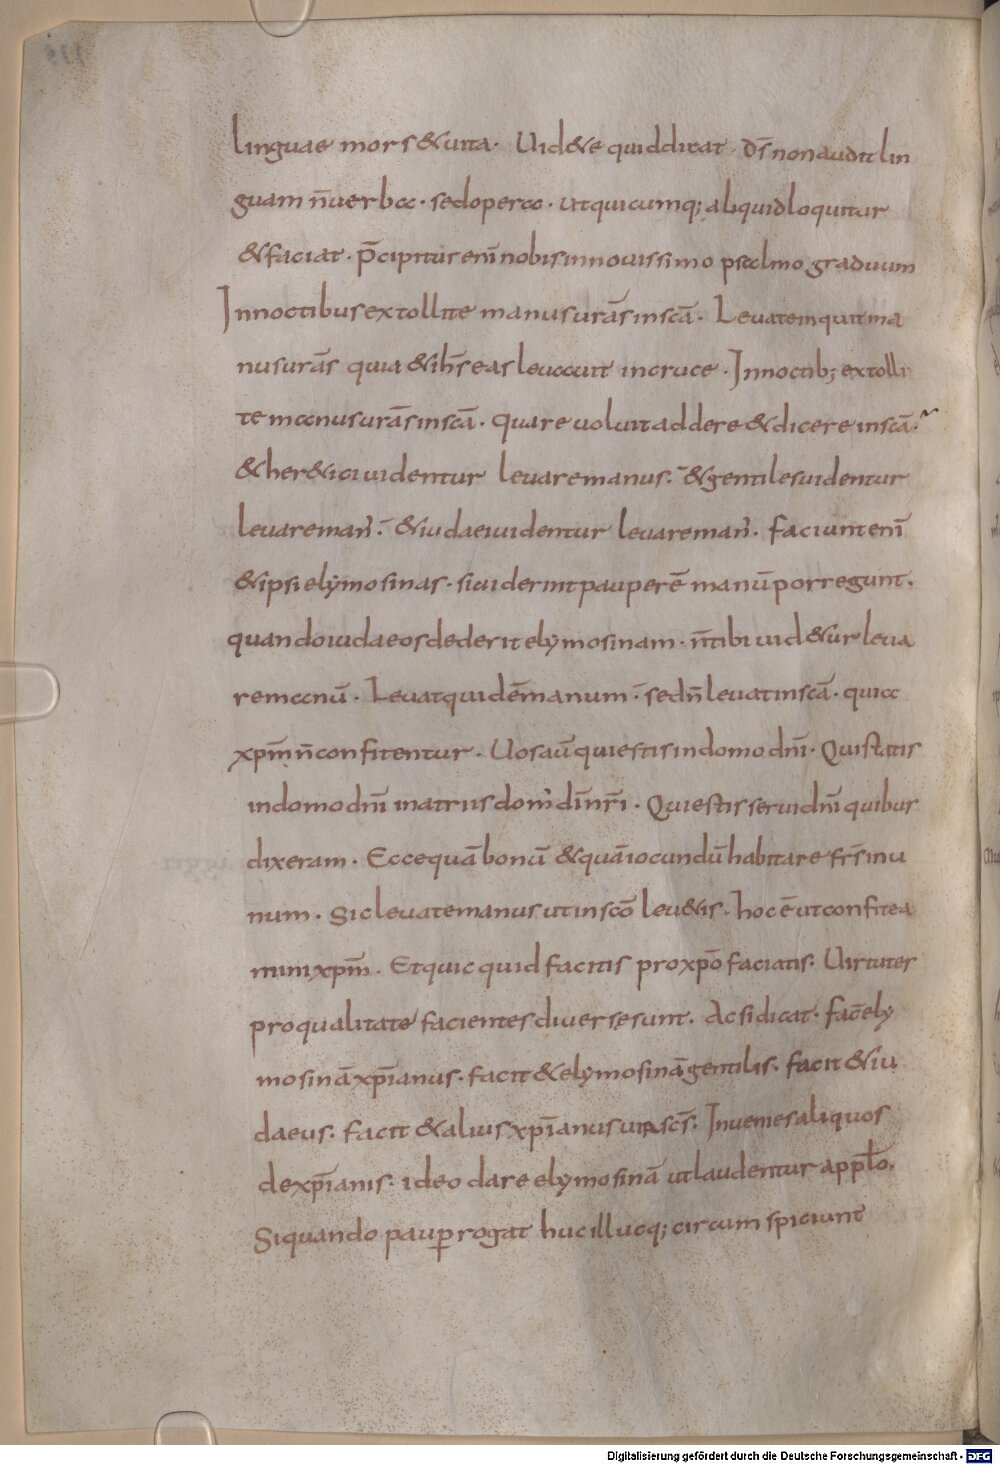 linguae mors & uita. Uid&e quid dicat. d̄s non audit lin
guam n̄ uerba. sed opera. ut quicumq; aliquid loquitur
& faciat. p̄cipitur enī nobis in nouissimo psalmo graduum
In noctibus extollite manus urās in scā. Leuate inquit ma
nus urās quia & ih̄s eas leuauit in cruce. In noctib; extolli
te manus urās in scā. quare uoluit addere & dicere in scā.
& her&ici uidentur leuare manus. & gentiles uidentur
leuare man̄. & iudaei uidentur leuare man̄. faciunt enī
& ipsi elymosinas. si uiderint pauperē manū porregunt.
quando iudaeos dederit elymosinam. n̄ tibi uid&ur leua
re manū. Leuat quidē manum. sed n̄ leuat in scā. quia
xp̄m n̄ confitentur. Uos aū qui estis in domo dn̄i. Qui statis
in domo dn̄i in atriis dom̄ dī nr̄i. Qui estis serui dn̄i quibus
dixeram. Ecce quā bonū & quā iocundū habitare fr̄s in u
num. Sic leuate manus ut in scō leu&is. hoc ē ut confitea
mini xp̄m. Et quicquid facitis pro xp̄o faciatis. Uirtutes
pro qualitate facientes diuersę sunt. Ac si dicat. fac̄ ely
mosinā xp̄ianus. facit & elymosinā gentilis. facit & iu
daeus. facit & alius xp̄ianus uir sc̄s. Inuenies aliquos
de xp̄ianis. ideo dare elymosinā ut laudentur a pplo.
Si quando paup̱ rogat huc illucq; circumspiciunt
Digitalisierung gefördert durch die Deutsche Forschungsgemeinschaft - DFG